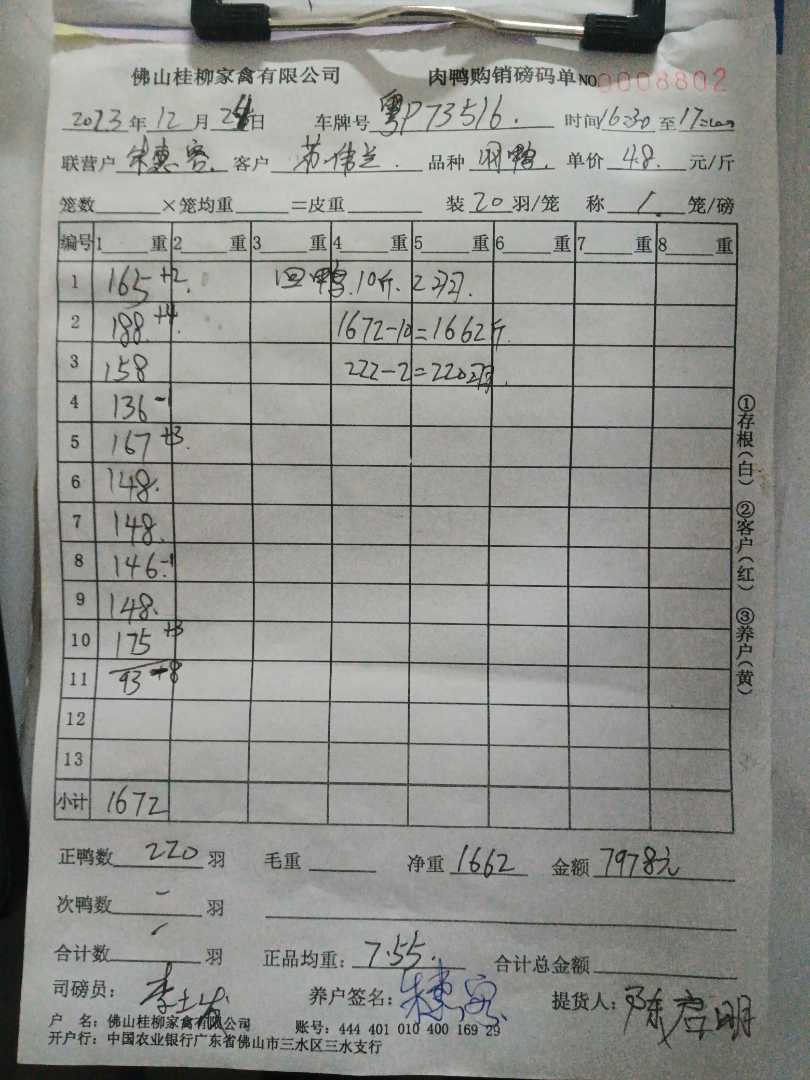 佛山桂柳家禽有限公司 肉鸭购销磅码单 NO 0008802
2023年12月24日 车牌号 粤P73516. 时间16:30至17:00
联营户 朱惠容. 客户 苏伟兰. 品种 羽鸭. 单价 4.8. 元/斤
笼数 ×笼均重 =皮重 装 20 羽/笼 称 1. 笼/磅
编号 1 重 2 重 3 重 4 重 5 重 6 重 7 重 8 重
1 165 +2. 回鸭.10斤.2羽.
2 188. +4. 1672-10=1662斤
3 158 222-2=220羽.
4 136 -1
5 167 +3.
6 148.
7 148.
8 146. -1
9 148.
10 175 +3
11 93 -8
12
13
小计 1672
正鸭数 220 羽 毛重 净重 1662 金额 7978元
次鸭数 - 羽
合计数 羽 正品均重: 7.55. 合计总金额
司磅员: 养户签名: 朱惠容 提货人: 陈启明
户 名: 佛山桂柳家禽有限公司 账号: 444 401 010 400 169 29
开户行: 中国农业银行广东省佛山市三水区三水支行
①存根(白) ②客户(红) ③养户(黄)